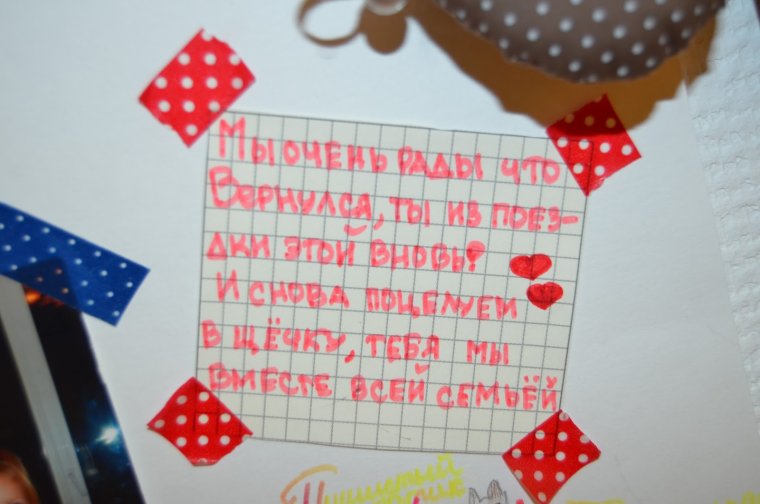 Мы очень рады что
Вернулся, ты из поез-
дки этой вновь!
И снова поцелуем
в щёчку, тебя мы
вместе всей семьёй